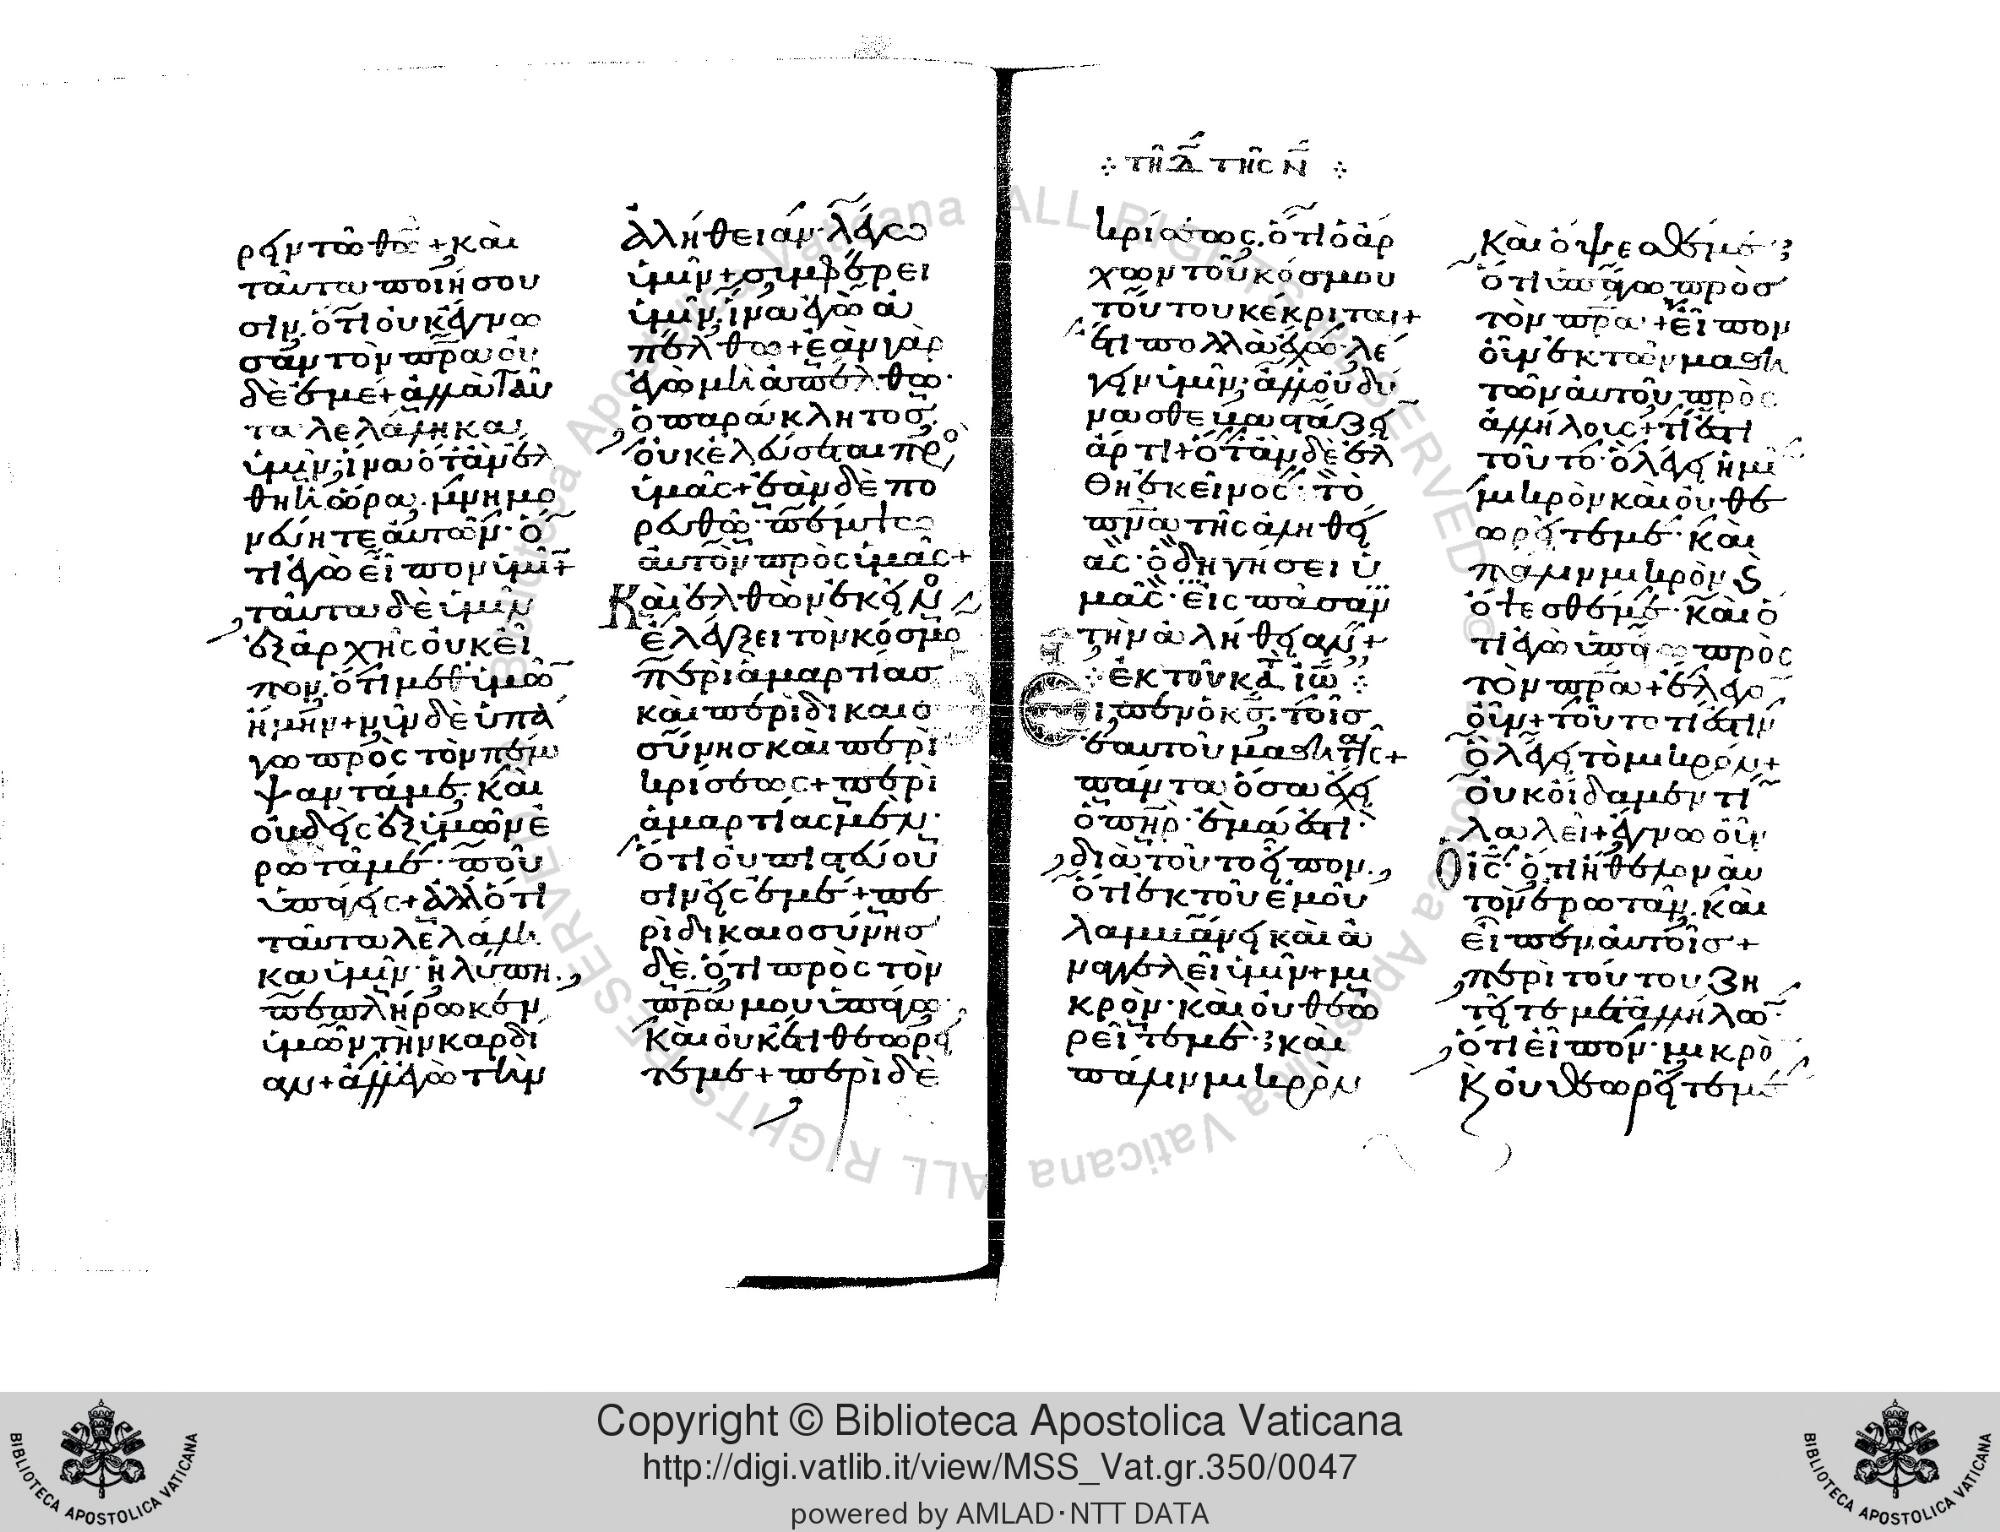 ρειν τῶ θ̅ω̅ + καὶ
ταῦτα ποιήσου
σιν. ὅτι οὐκ ἔγνω
σαν τὸν π̅ρ̅α οὐ
δὲ ἐμέ + ἀλλὰ ταῦ
τα λελάληκα
ὑμῖν· ἵνα ὅταν ἔλ
θη ἡ ὥρα. μνημο
νεύητε αὐτῶν· ὅ
τι ἐγὼ εἶπον ὑμῖ +
ταῦτα δὲ ὑμῖν
ἐξ ἀρχῆς οὐκ εἶ
πον. ὅτι μεθ' ὑμῶ
ἤμην + νῦν δὲ ὑπά
γω πρὸς τὸν πέμ
ψαντά με. καὶ
οὐδεὶς ἐξ ὑμῶν ἐ
ρωτᾶ με· ποῦ
ὑπάγεις + ἀλλ' ὅτι
ταῦτα λελάλη
κα ὑμῖν· ἡ λύπη.
πεπλήρωκεν
ὑμῶν τὴν καρδί
αν + ἀλλ' ἐγὼ τὴν
ἀλήθειαν· λέγω
ὑμῖν + συμφέρει
ὑμῖν. ἵνα ἐγὼ ἀ
πέλθω + ἐὰν γὰρ
ἐγὼ μὴ ἀπέλθω·
ὁ παράκλητος.
οὐκ ἐλεύσεται πρ
ὑμᾶς + ἐὰν δὲ πο
ρευθῶ· πέμψω
αὐτὸν πρὸς ὑμᾶς +
Καὶ ἐλθὼν ἐκεῖν
ἐλέγξει τὸν κόσμο
περὶ ἁμαρτίασ
καὶ περὶ δικαιο
σύνησ καὶ περὶ
κρίσεως + περὶ
ἁμαρτίας μέν·
ὅτι οὐ πιστεύου
σιν εἰς ἐμέ + πε
ρὶ δικαιοσύνησ
δὲ. ὅτι πρὸς τὸν
π̅ρ̅α μου ὑπάγω·
καὶ οὐκ ἔτι θεωρεῖ
τέ με + περὶ δὲ
τῆ Δ τῆς Ν
κρίσεως. ὅτι ὁ ἄρ
χων τοῦ κόσμου
τούτου κέκριται +
ἔτι πολλὰ ἔχω λέ
γειν ὑμῖν· ἀλλ' οὐ δύ
νασθε βαστάζειν
ἄρτι + ὅταν δὲ ἔλ
θη ἐκεῖνος· τὸ
π̅ν̅α τῆς ἀληθεί
ας· ὁδηγήσει ὑ
μᾶς· εἰς πᾶσαν
τὴν ἀλήθειαν +
ἐκ τοῦ κατ ἰω
ιπεν ὁ κ̅ς̅. τοῖσ
ἑαυτοῦ μαθηταῖς +
πάντα ὅσα ἔχει
ὁ π̅η̅ρ· ἐμά ἐστι·
διὰ τοῦτο εἶπον.
ὅτι ἐκ τοῦ ἐμοῦ
λαμβάνει καὶ ἀ
ναγγελεῖ ὑμῖν + μι
κρὸν· καὶ οὐ θεω
ρεῖτέ με· καὶ
πάλιν μικρὸν
καὶ ὄψεσθέ με·
ὅτι ὑπάγω πρὸσ
τὸν π̅ρ̅α + εἶπον
οὖν ἐκ τῶν μαθη
τῶν αὐτοῦ πρὸς
ἀλλήλους + τί ἐστι
τοῦτο· ὃ λέγει ἡμῖ
μικρὸν καὶ οὐ θε
ωρεῖτέ με· καὶ
πάλιν μικρὸν ϗ
ὄψεσθέ με· καὶ ὅ
τι ἐγὼ ὑπάγω πρὸς
τὸν π̅ρ̅α + ἔλεγο
οὖν + τοῦτο τί ἐστιν
ὃ λέγει τὸ μικρόν +
οὐκ οἴδαμεν τί
λαλεῖ + ἔγνω οὖν
ὁ ι̅ς̅· ὅτι ἤθελον αὐ
τὸν ἐρωτᾶν. καὶ
εἶπεν αὐτοῖσ +
περὶ τούτου ζη
τεῖτε μετ' ἀλλήλω·
ὅτι εἶπον· μικρὸ
ϗ οὐ θεωρεῖτέ με
Copyright © Biblioteca Apostolica Vaticana
http://digi.vatlib.it/view/MSS_Vat.gr.350/0047
powered by AMLAD·NTT DATA
BIBLIOTECA APOSTOLICA VATICANA
BIBLIOTECA APOSTOLICA VATICANA